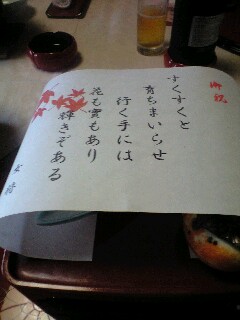 御祝
すくすくと
育ちまいらせ
行く手には
花も實もあり
輝きぞある